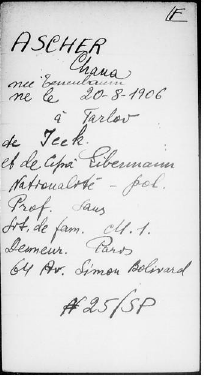 F
ASCHER
Chana
née Tenenbaum
né le 20-8-1906
à Tarlov
de Jeck
et de Cypa Libermann
Nationalité - pol.
Prof. Sans
Sit. de fam. M. 1.
Demeur. Paris
64 Av. Simon Bolivard
N 25/SP